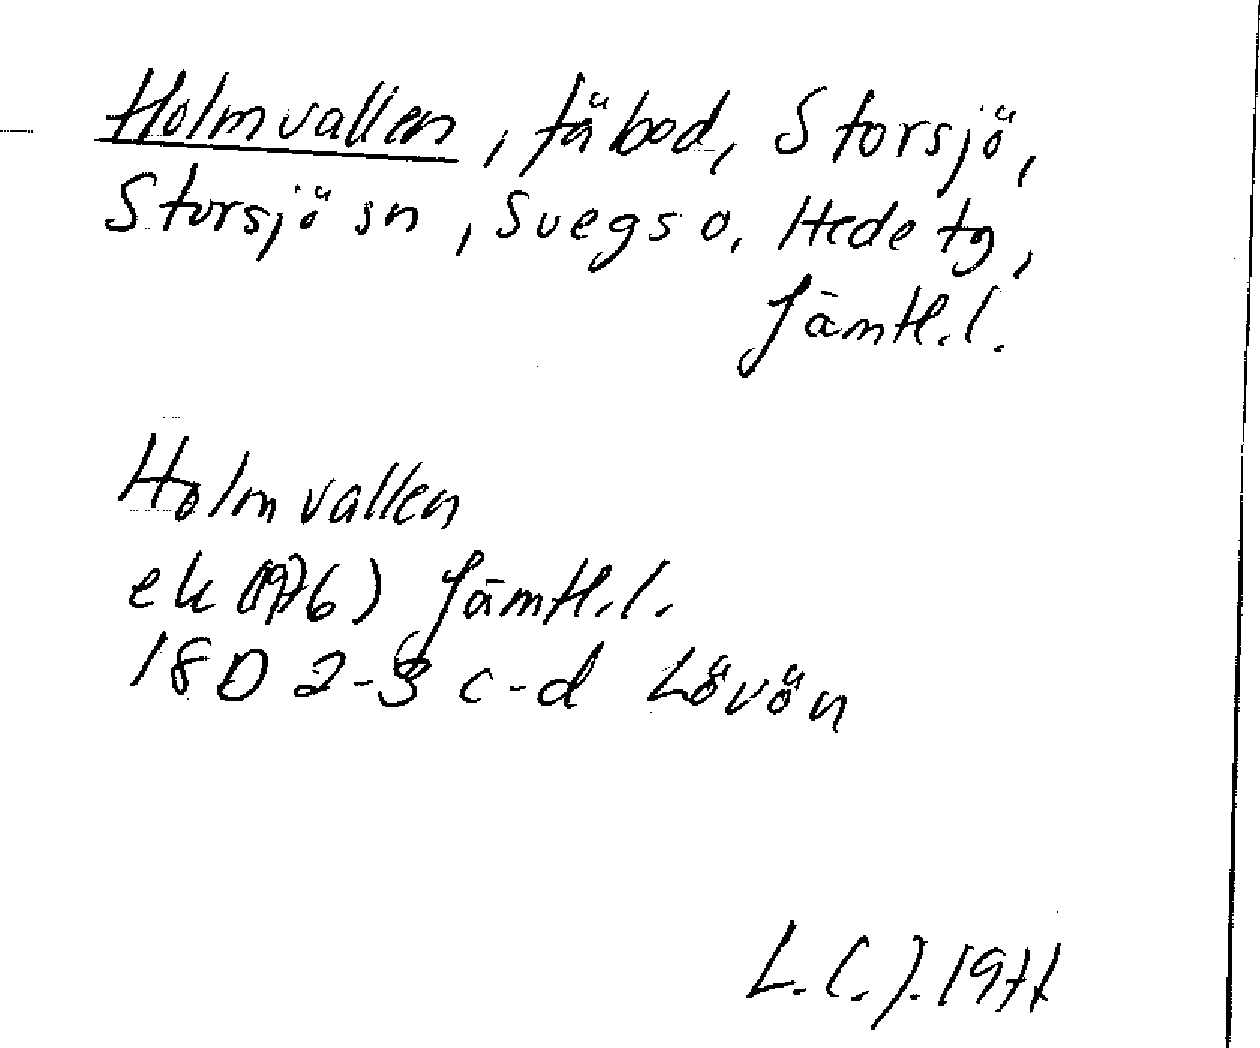 Holmvallen, fäbod, Storsjö,
Storsjö sn, Svegs o, Hede tg,
Jämtl.l.
Holmvallen
ek (1976) Jämtl.l.
18D 2-3 c-d Lövön
L.C.J. 1977